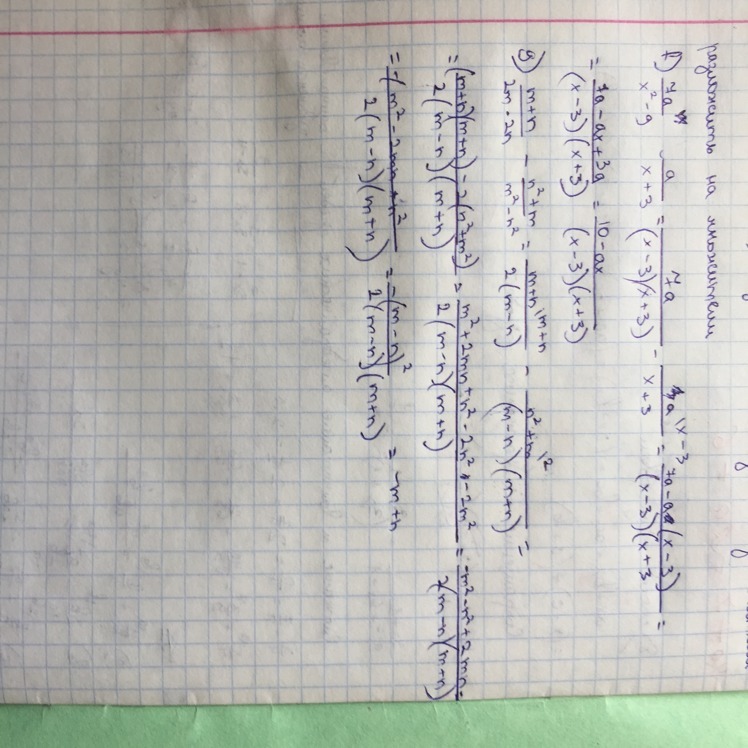 разложить на множители
f) 7a/(x² - 9) - a/(x+3) = 7a/((x-3)(x+3)) - a^(x-3)/(x+3) = (7a - a(x-3))/((x-3)(x+3) =
= (7a - ax + 3a)/((x-3)(x+3)) = (10 - ax)/((x-3)(x+3))
g) (m+n)/(2m - 2n) - (n² + m)/(m² - n²) = (m+n)^(m+n)/(2(m-n)) - (n² + m)^2/((m-n)(m+n)) =
= ((m+n)(m+n) - 2(n² + m²))/(2(m-n)(m+n)) = (m² + 2mn + n² - 2n² - 2m²)/(2(m-n)(m+n)) = (-m² - n² + 2mn)/(2(m-n)(m+n)) =
= -(m² - 2mn + n²)/(2(m-n)(m+n)) = -(m-n)²/(2(m-n)(m+n)) = -m+n